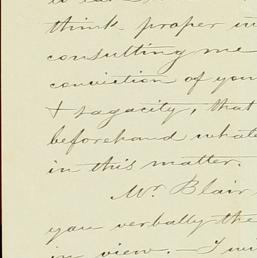 think proper in
consulting me
conviction of you
& sagacity, that
beforehand whate
in this matter.
Mr. Blair
you verbally the
in view. — I wi